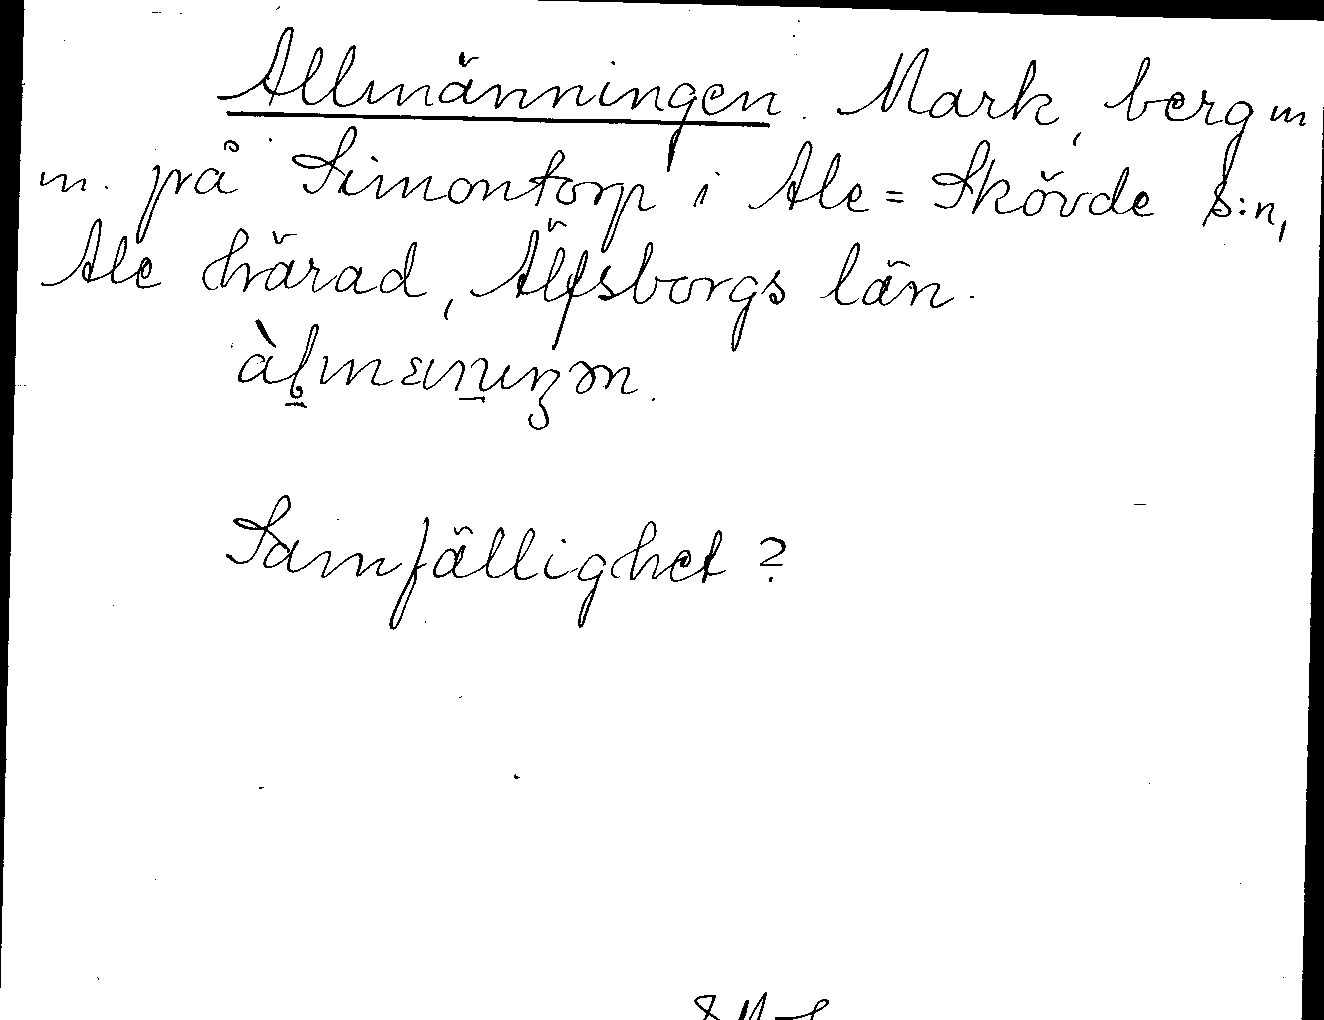 Allmänningen. Mark, berg m
m. på Simontorp i Ale=Skövde s:n,
Ale härad, Älfsborgs län.
Samfällighet?